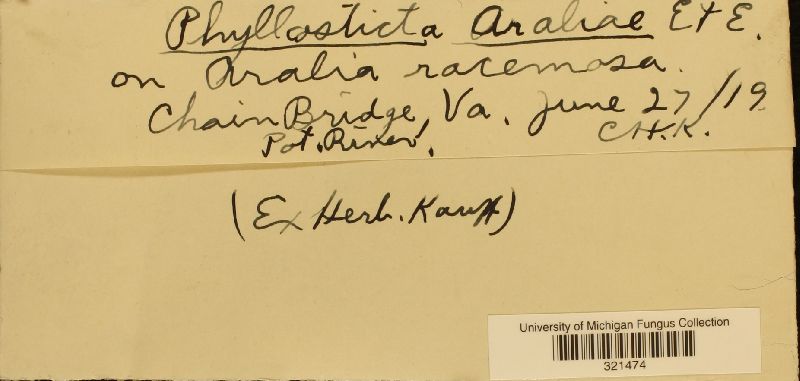 Phyllosticta Araliae E & E.
on Aralia racemosa.
Chain Bridge, Va. June 27/19
Pot. River. C.H.K.
(Ex Herb. Kauff)
University of Michigan Fungus Collection
321474